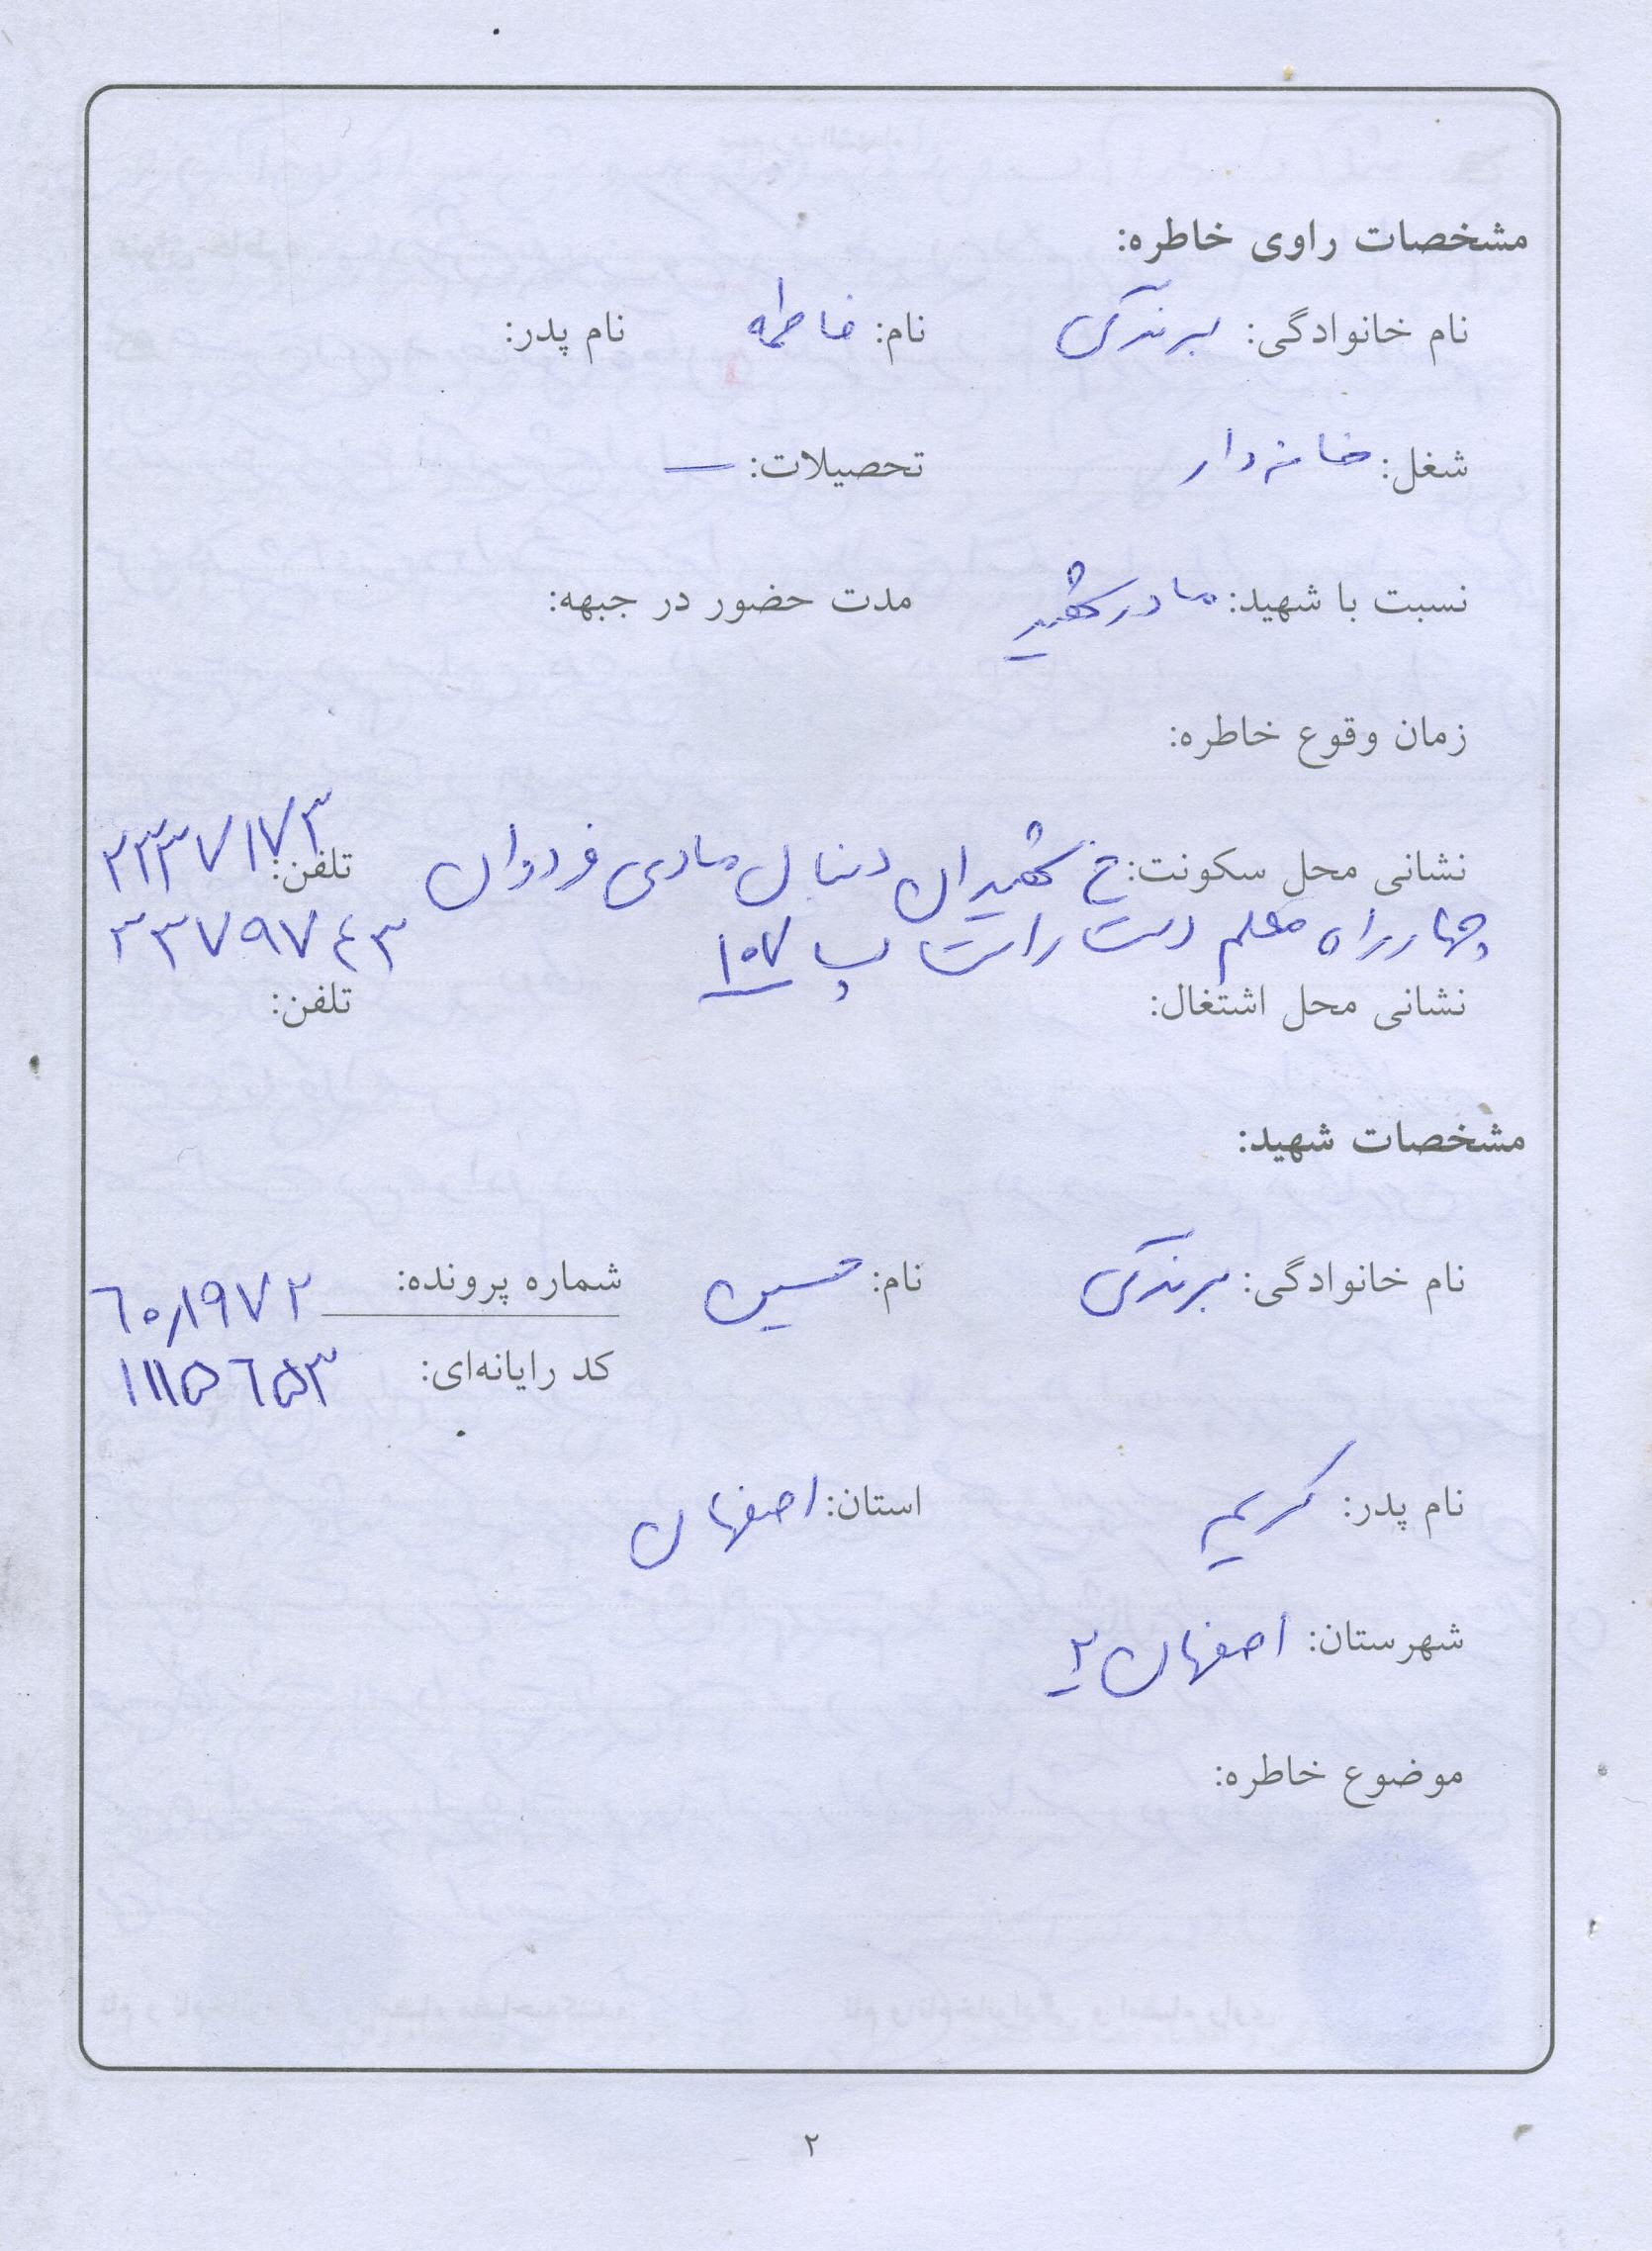 مشخصات راوی خاطره:
نام خانوادگی: برندگی نام: فاطمه نام پدر:
شغل: خانه دار تحصیلات: —
نسبت با شهید: مادر شهید مدت حضور در جبهه:
زمان وقوع خاطره:
نشانی محل سکونت: خ شهیدان دنبال مادی فردوان تلفن: ۲۳۳۷۱۷۳
چهارراه معلم دست راست پ ۱۰۷ ۲۳۷۹۷۴۳
نشانی محل اشتغال: تلفن:
مشخصات شهید:
نام خانوادگی: برندگی نام: حسین شماره پرونده: ۶۰/۱۹۷۲
کد رایانه‌ای: ۱۱۱۵۶۵۳
نام پدر: کریم استان: اصفهان
شهرستان: اصفهان ۲
موضوع خاطره:
۲